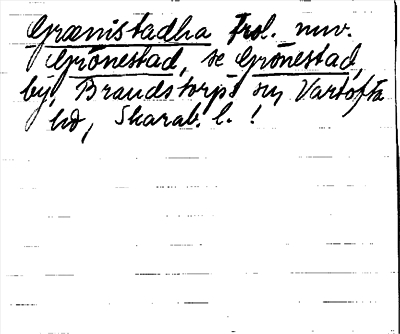 Grænistadha Frsl. nuv.
Grönestad, se Grönestad,
by, Brandstorps sn Vartofta
hd, Skarab. l. !